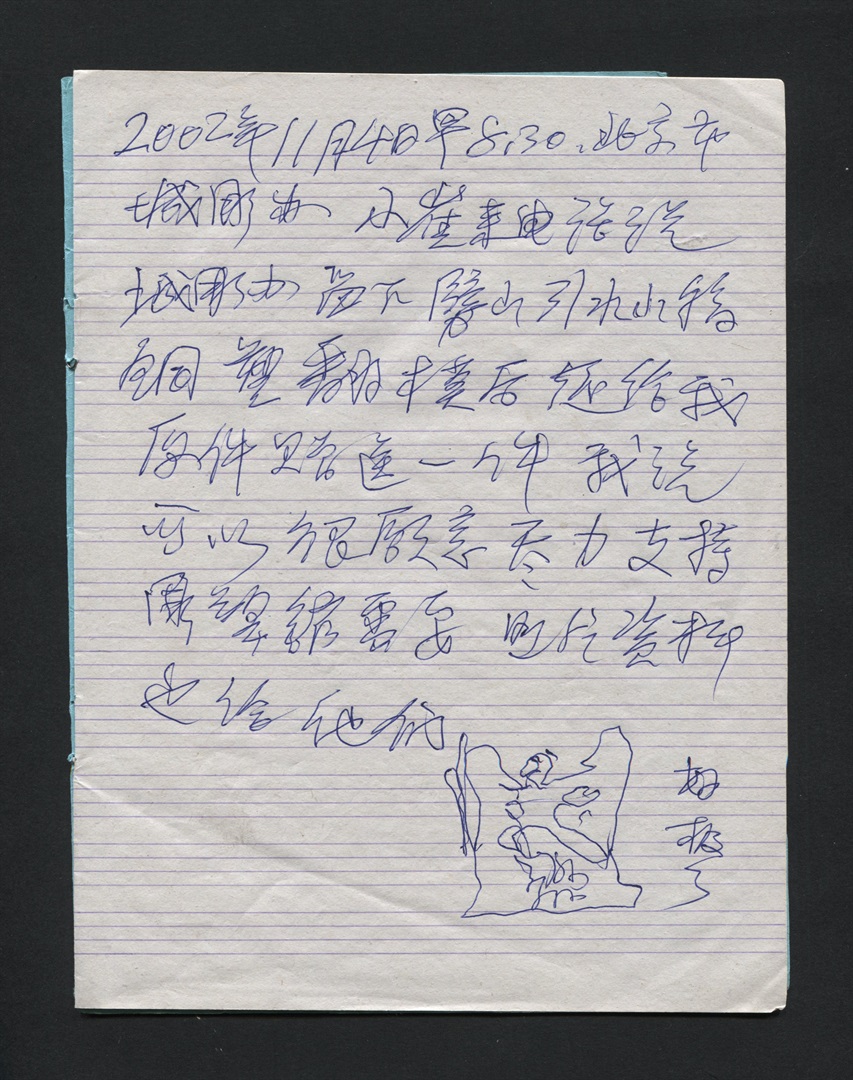 2002年11月4日早8:30.北京市
城雕办 小崔来电话说
城雕办留下劈山引水小稿
铜塑翻模后还给我
原件 一件 我说
可以 很愿意尽力支持
雕塑 需要 资料
也给他们
好极了